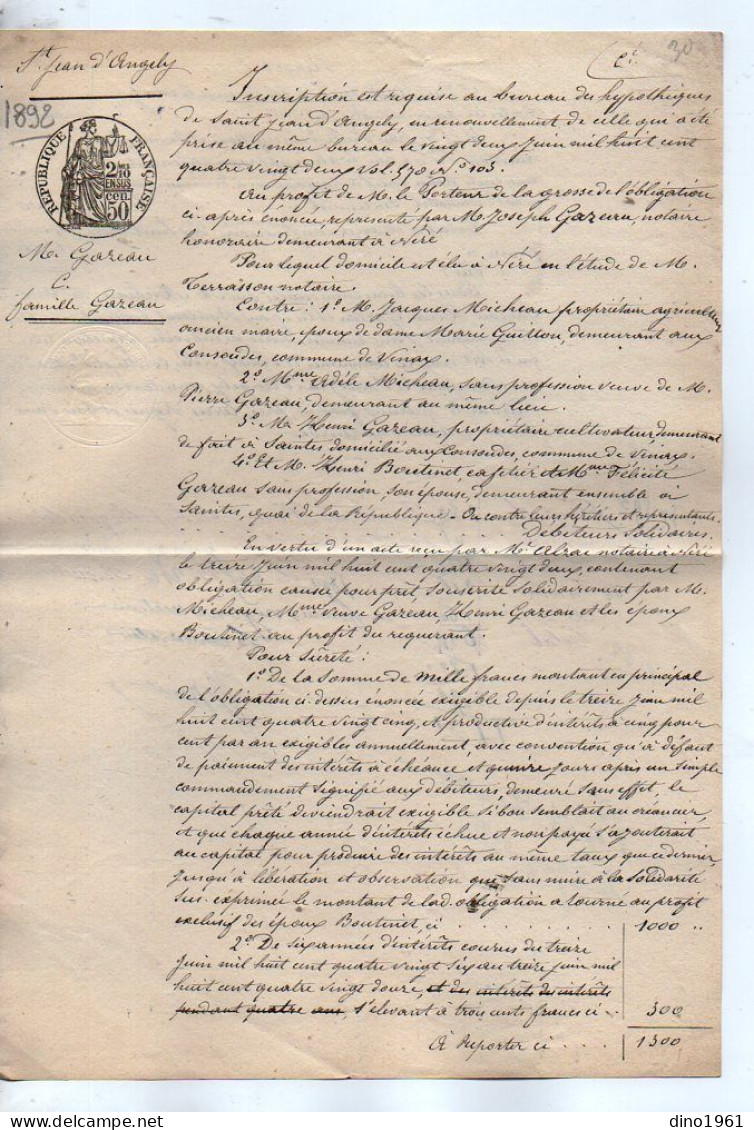 St Jean d'Angely
1892
RÉPUBLIQUE FRANÇAISE
2/10
EN SUS
50 cen.
M. Gazeau
C.
famille Gazeau
30
Inscription est requise au bureau des hypothèques
de Saint Jean d'Angely, en renouvellement de celle qui a été
prise au même bureau le vingt deux Juin mil huit cent
quatre vingt deux Vol. 570 No. 103.
Au profit de M. le Porteur de la grosse de l'obligation
ci-après énoncée, représenté par M. Joseph Gazeau, notaire
honoraire demeurant à Néré
Pour lequel domicile est élu à Néré en l'étude de M.
Terrasson notaire.
Contre : 1o. M. Jacques Micheau propriétaire agriculteur
ancien maire, époux de dame Marie Guitton, demeurant aux
Consoudes, commune de Vinax.
2o. Mme Adèle Micheau, sans profession veuve de M.
Pierre Gazeau, demeurant au même lieu.
3o. M. Henri Gazeau, propriétaire cultivateur, demeurant
de fait à Saintes, domicilié aux Consoudes, commune de Vinax
4o. Et M. Henri Boutinet, cafetier et Mme Félicité
Gazeau sans profession, son épouse, demeurant ensemble à
Saintes, quai de la République - Ou contre leurs héritiers et représentants.
Débiteurs Solidaires.
En vertu d'un acte reçu par Me. Alzac notaire à Néré
le treize Juin mil huit cent quatre vingt deux, contenant
obligation causée pour prêt, souscrite solidairement par M.
Micheau, Mme veuve Gazeau, Henri Gazeau et les époux
Boutinet au profit du requerant.
Pour Sûreté :
1o. De la Somme de Mille francs montant en principal
de l'obligation ci-dessus énoncée exigible depuis le treize Juin mil
huit cent quatre vingt cinq, et productive d'intérêts à cinq pour
cent par an exigibles annuellement, avec convention qu'à défaut
de paiement des intérêts à échéance et quinze jours après un simple
commandement signifié aux débiteurs, demeuré sans effet, le
capital prêté deviendrait exigible si bon semblait au créancier,
et que chaque année d'intérêts échue et non payée s'ajouterait
au capital pour produire des intérêts au même taux que ce dernier
jusqu'à libération et observation que sans nuire à la solidarité
sus-exprimée le montant de lad. obligation a tourné au profit
exclusif des époux Boutinet, ci . . . . . . 1000 "
2o. De six années d'intérêts courus du treize
Juin mil huit cent quatre vingt six au treize Juin mil
huit cent quatre vingt douze, et des intérêts des intérêts
pendant quatre ans, s'élevant à trois cents francs ci . . 300
à Reporter ci . . . . 1300
dino1961